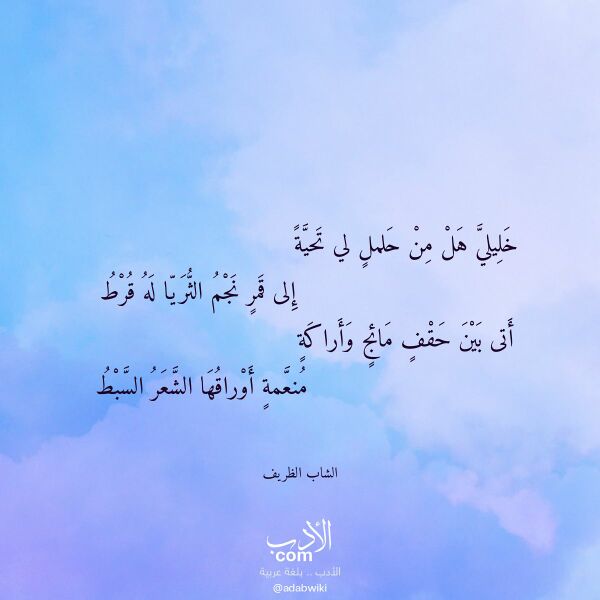 خَلِيليَّ هَلْ مِنْ حَلملٍ لي تَحيَّةً
إِلى قَمرٍ نَجْمُ الثُّرَيّا لَهُ قُرْطُ
أَتى بَيْنَ حَقْفٍ مَائجٍ وَأَراكَةٍ
مُنعَّمةٍ أَوْراقُهَا الشَّعَرُ السَّبْطُ
الشاب الظريف
الأدب
com
الأدب .. بلغة عربية
@adabwiki